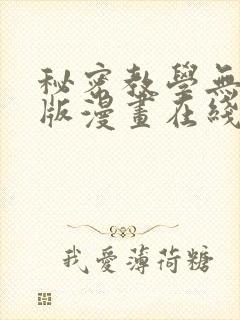 秘密教學無
版漫畫在綫
我愛薄荷糖